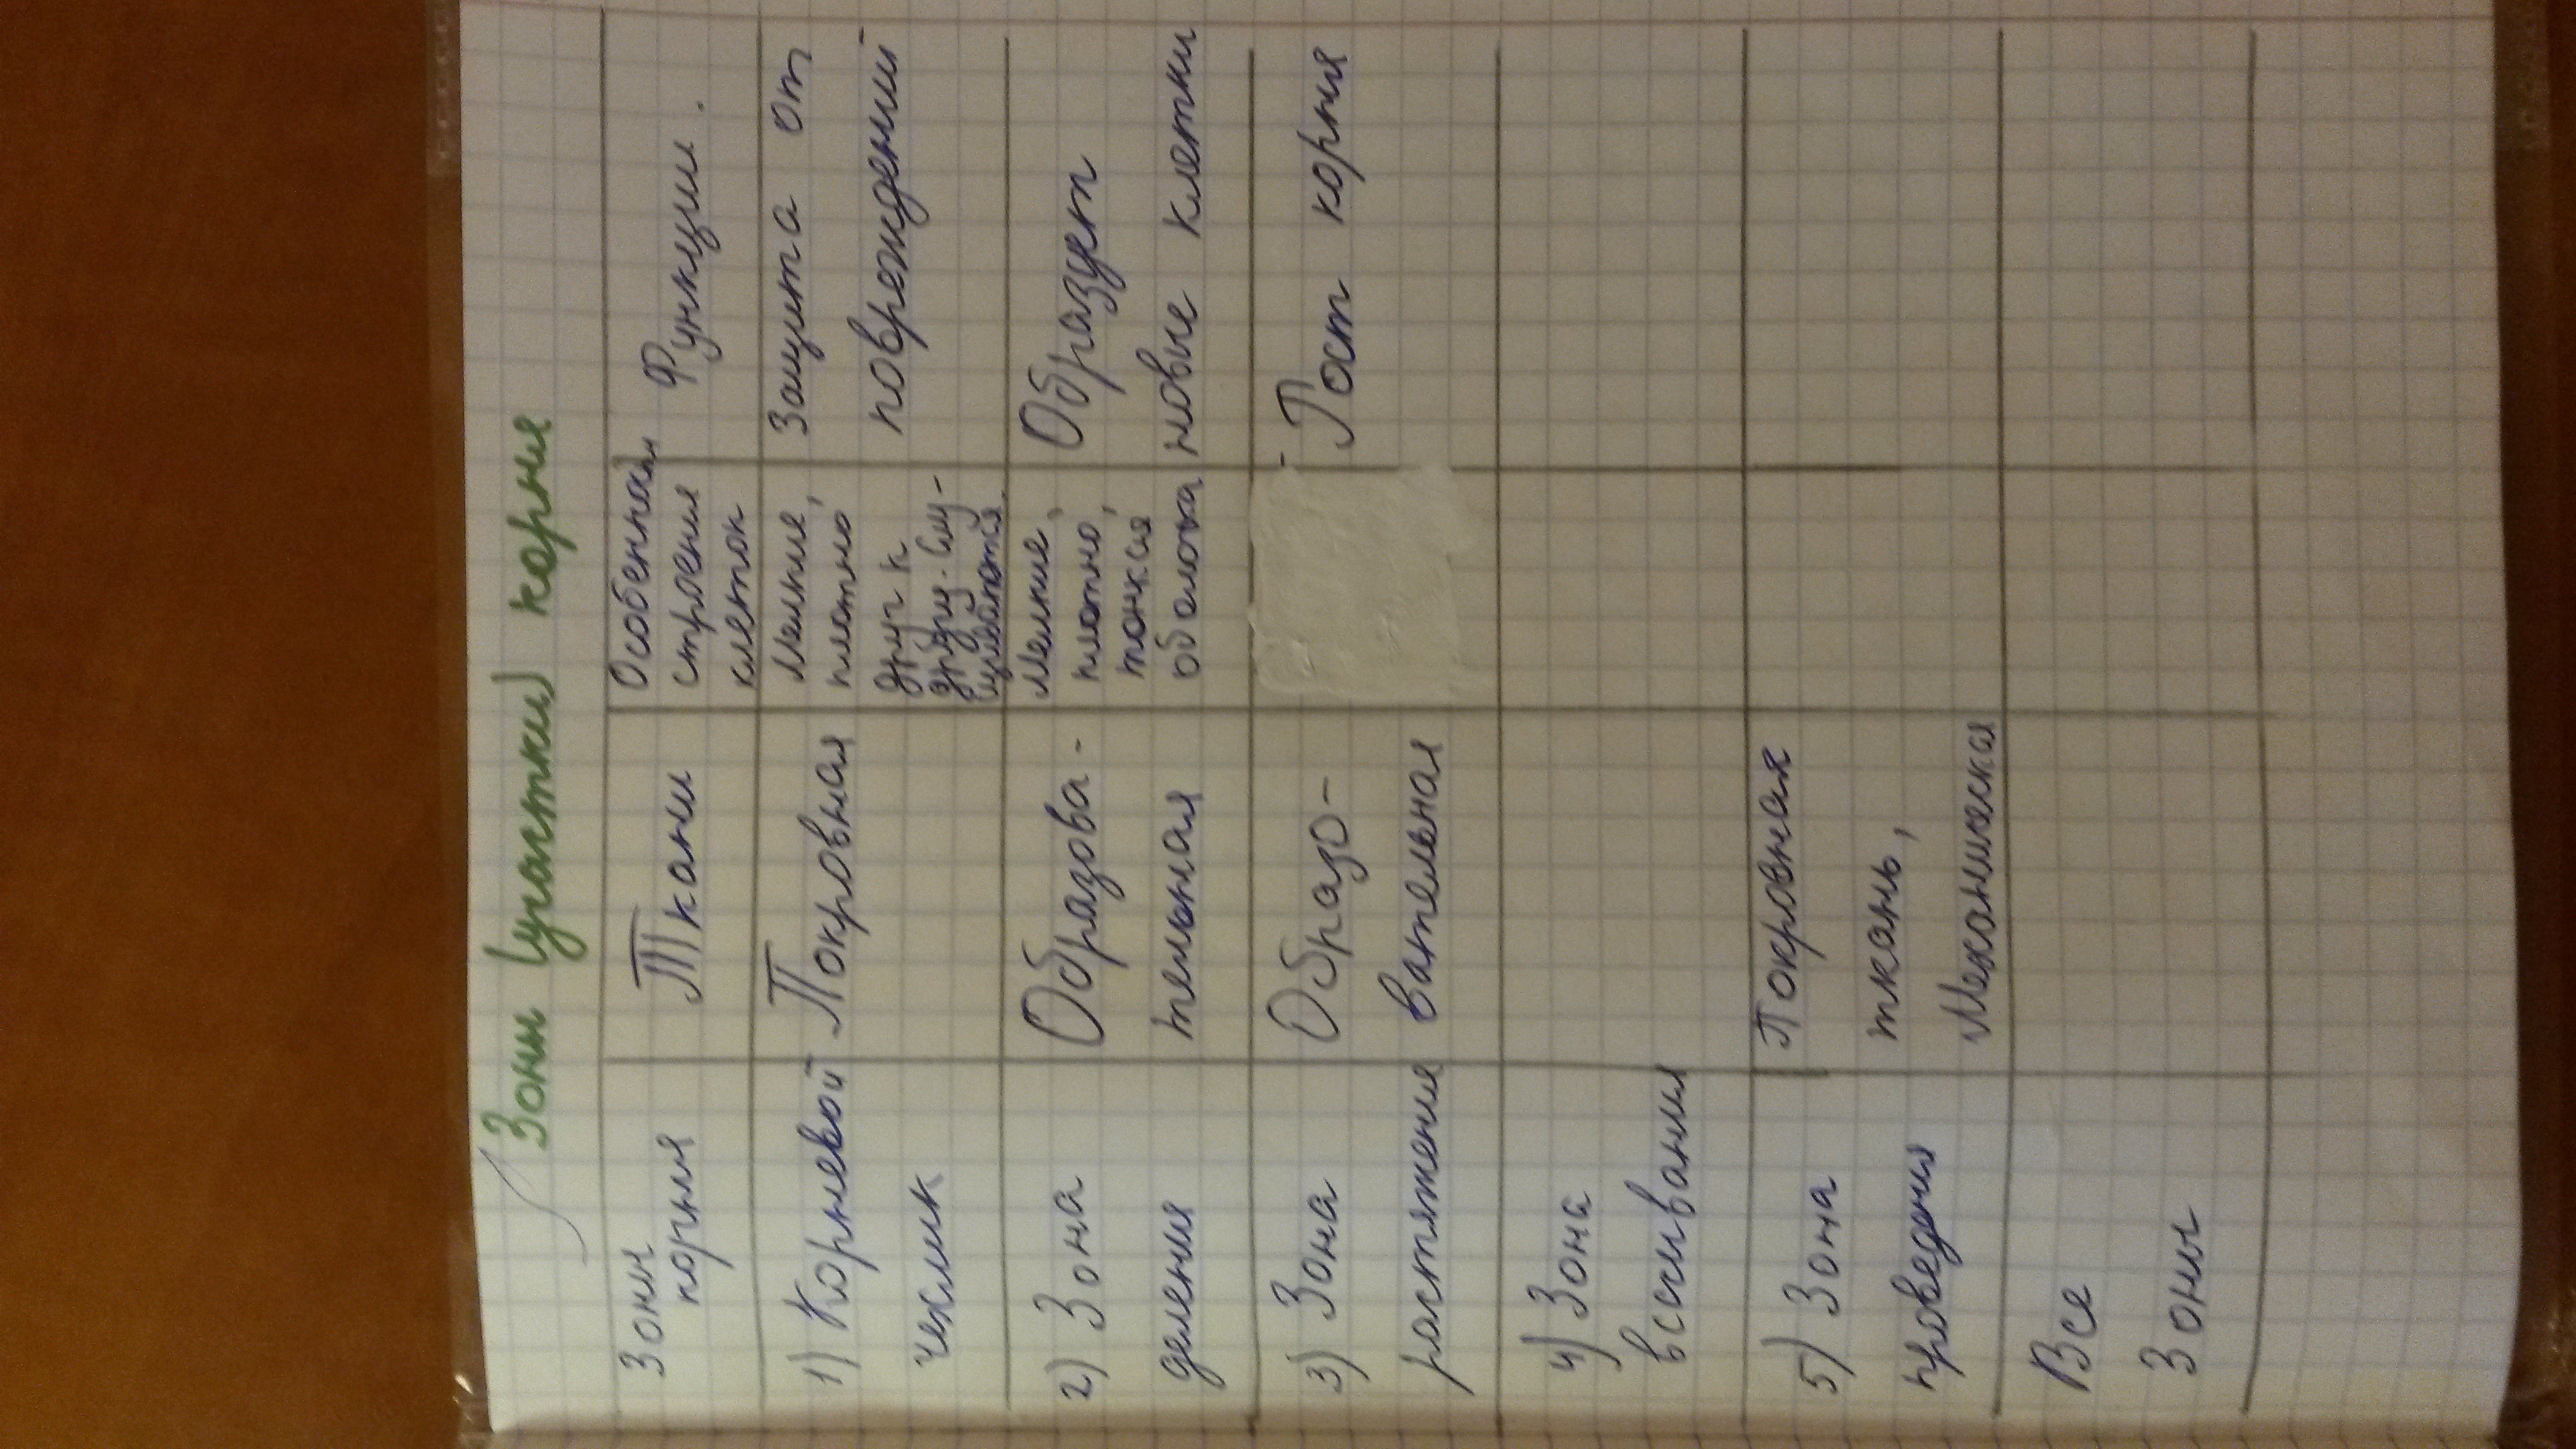 Зоны (участки) корня
Зоны
корня
Ткани
Особенности
строения
клеток
Функции.
1) Корневой
чехлик
Покровная
Мелкие,
плотно
друг к
другу.
Защита от
повреждений
2) Зона
деления
Образова-
тельная
Мелкие,
плотно,
тонкая
оболочка
Образует
новые клетки
3) Зона
ростяжения
Образо-
вательная
Рост корня
4) Зона
всасывания
5) Зона
проведения
Покровная
ткань,
Механическая
Все
Зоны